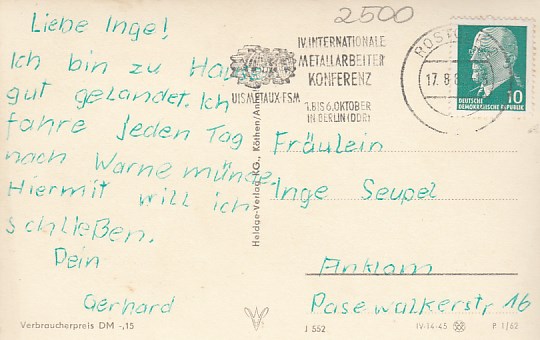 2500
Liebe Inge!
Ich bin zu Hause
gut gelandet. Ich
fahre jeden Tag
nach Warnemünde.
Hiermit will ich
schließen.
Dein
Gerhard
Verbraucherpreis DM -,15
Heldge-Verlag KG., Köthen/Anhalt
IV. INTERNATIONALE
METALLARBEITER
KONFERENZ
UISMETAUX-FSM
1. BIS 6. OKTOBER
IN BERLIN (DDR)
17.8.
DEUTSCHE
DEMOKRATISCHE REPUBLIK
10
Fräulein
Inge Seupel
Anklam
Pasewalkerstr 16
J 552
IV-14-45
P 1/62